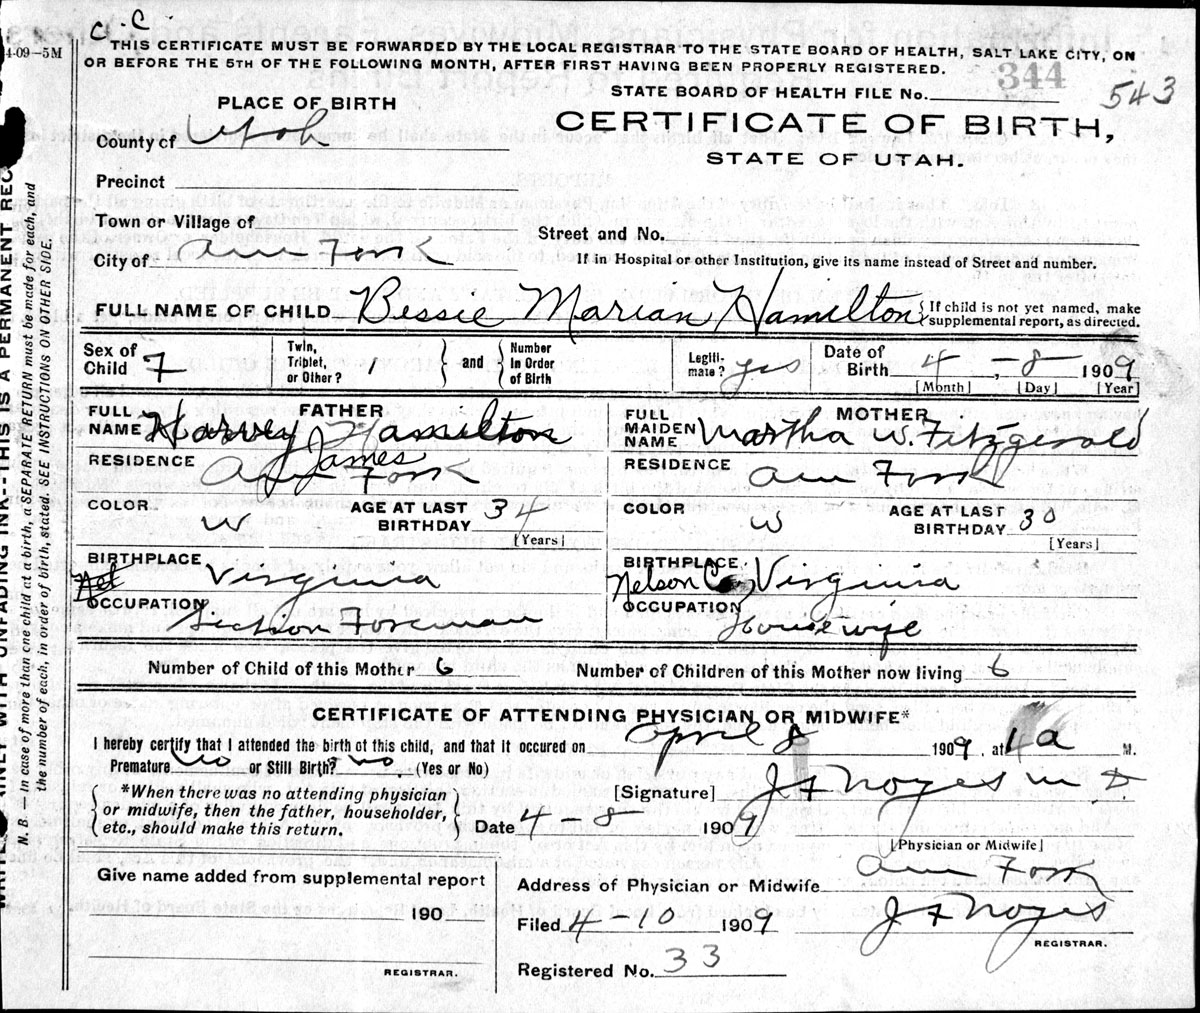 C. C.
4-09-5M
THIS CERTIFICATE MUST BE FORWARDED BY THE LOCAL REGISTRAR TO THE STATE BOARD OF HEALTH, SALT LAKE CITY, ON
OR BEFORE THE 5TH OF THE FOLLOWING MONTH, AFTER FIRST HAVING BEEN PROPERLY REGISTERED.
344
STATE BOARD OF HEALTH FILE No.
543
PLACE OF BIRTH
CERTIFICATE OF BIRTH,
County of Utah
STATE OF UTAH.
Precinct
Town or Village of
Street and No.
City of Am Fork
If in Hospital or other Institution, give its name instead of Street and number.
FULL NAME OF CHILD Bessie Marian Hamilton {If child is not yet named, make
supplemental report, as directed.
Sex of Child F
Twin, Triplet, or Other? 1 } and { Number in Order of Birth
Legiti-mate? yes
Date of Birth 4 - 8 1909
[Month] [Day] [Year]
FULL NAME FATHER Harvey Hamilton
James
RESIDENCE Am Fork
COLOR W AGE AT LAST BIRTHDAY 34
[Years]
BIRTHPLACE Virginia
OCCUPATION Section Foreman
FULL MAIDEN NAME MOTHER Martha W. Fitzgerald
RESIDENCE Am Fork
COLOR W AGE AT LAST BIRTHDAY 30
[Years]
BIRTHPLACE Nelson Co Virginia
OCCUPATION Housewife
Number of Child of this Mother 6 Number of Children of this Mother now living 6
CERTIFICATE OF ATTENDING PHYSICIAN OR MIDWIFE*
I hereby certify that I attended the birth of this child, and that it occured on April 8 1909, at 4 a M.
Premature No or Still Birth? No (Yes or No)
{ *When there was no attending physician
or midwife, then the father, householder,
etc., should make this return. }
[Signature] J F Noyes M D
Date 4-8- 1909
[Physician or Midwife]
Give name added from supplemental report
190
REGISTRAR.
Address of Physician or Midwife Am Fork
Filed 4-10 1909 J F Noyes
REGISTRAR.
Registered No. 33
N. B. — In case of more than one child at a birth, a SEPARATE RETURN must be made for each, and
the number of each, in order of birth, stated. SEE INSTRUCTIONS ON OTHER SIDE.
WITH UNFADING INK---THIS IS A PERMANENT